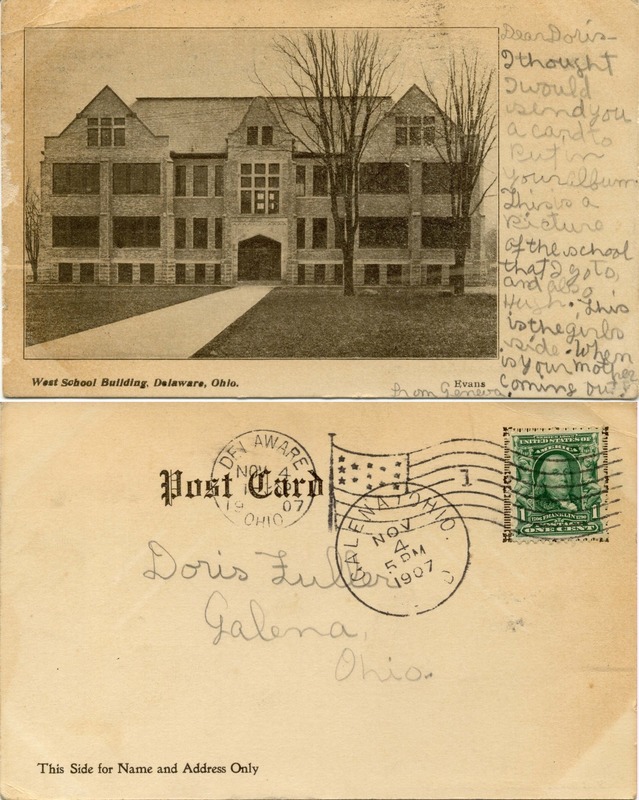 Dear Doris-
I thought
I would
send you
a card to
put in
your album.
This is a
picture
of the school
that I go to,
and also
Hugh. This
is the girls
side. When
is your mother
coming out?
from Geneva
West School Building, Delaware, Ohio.
Evans
DELAWARE
NOV 4
1907
OHIO
Post Card
1
GALENA OHIO.
NOV
4
5 PM
1907
UNITED STATES OF
AMERICA
1706 FRANKLIN 1790
POSTAGE
1 ONE CENT 1
Doris Fuller
Galena,
Ohio.
This Side for Name and Address Only